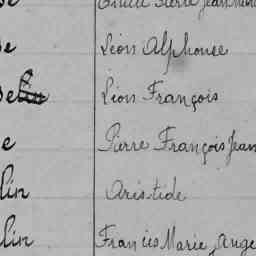 Pierre Jean
e Léon Alphonse
Léon François
e Pierre François Jean
lin Aristide
lin Francis Marie Ange